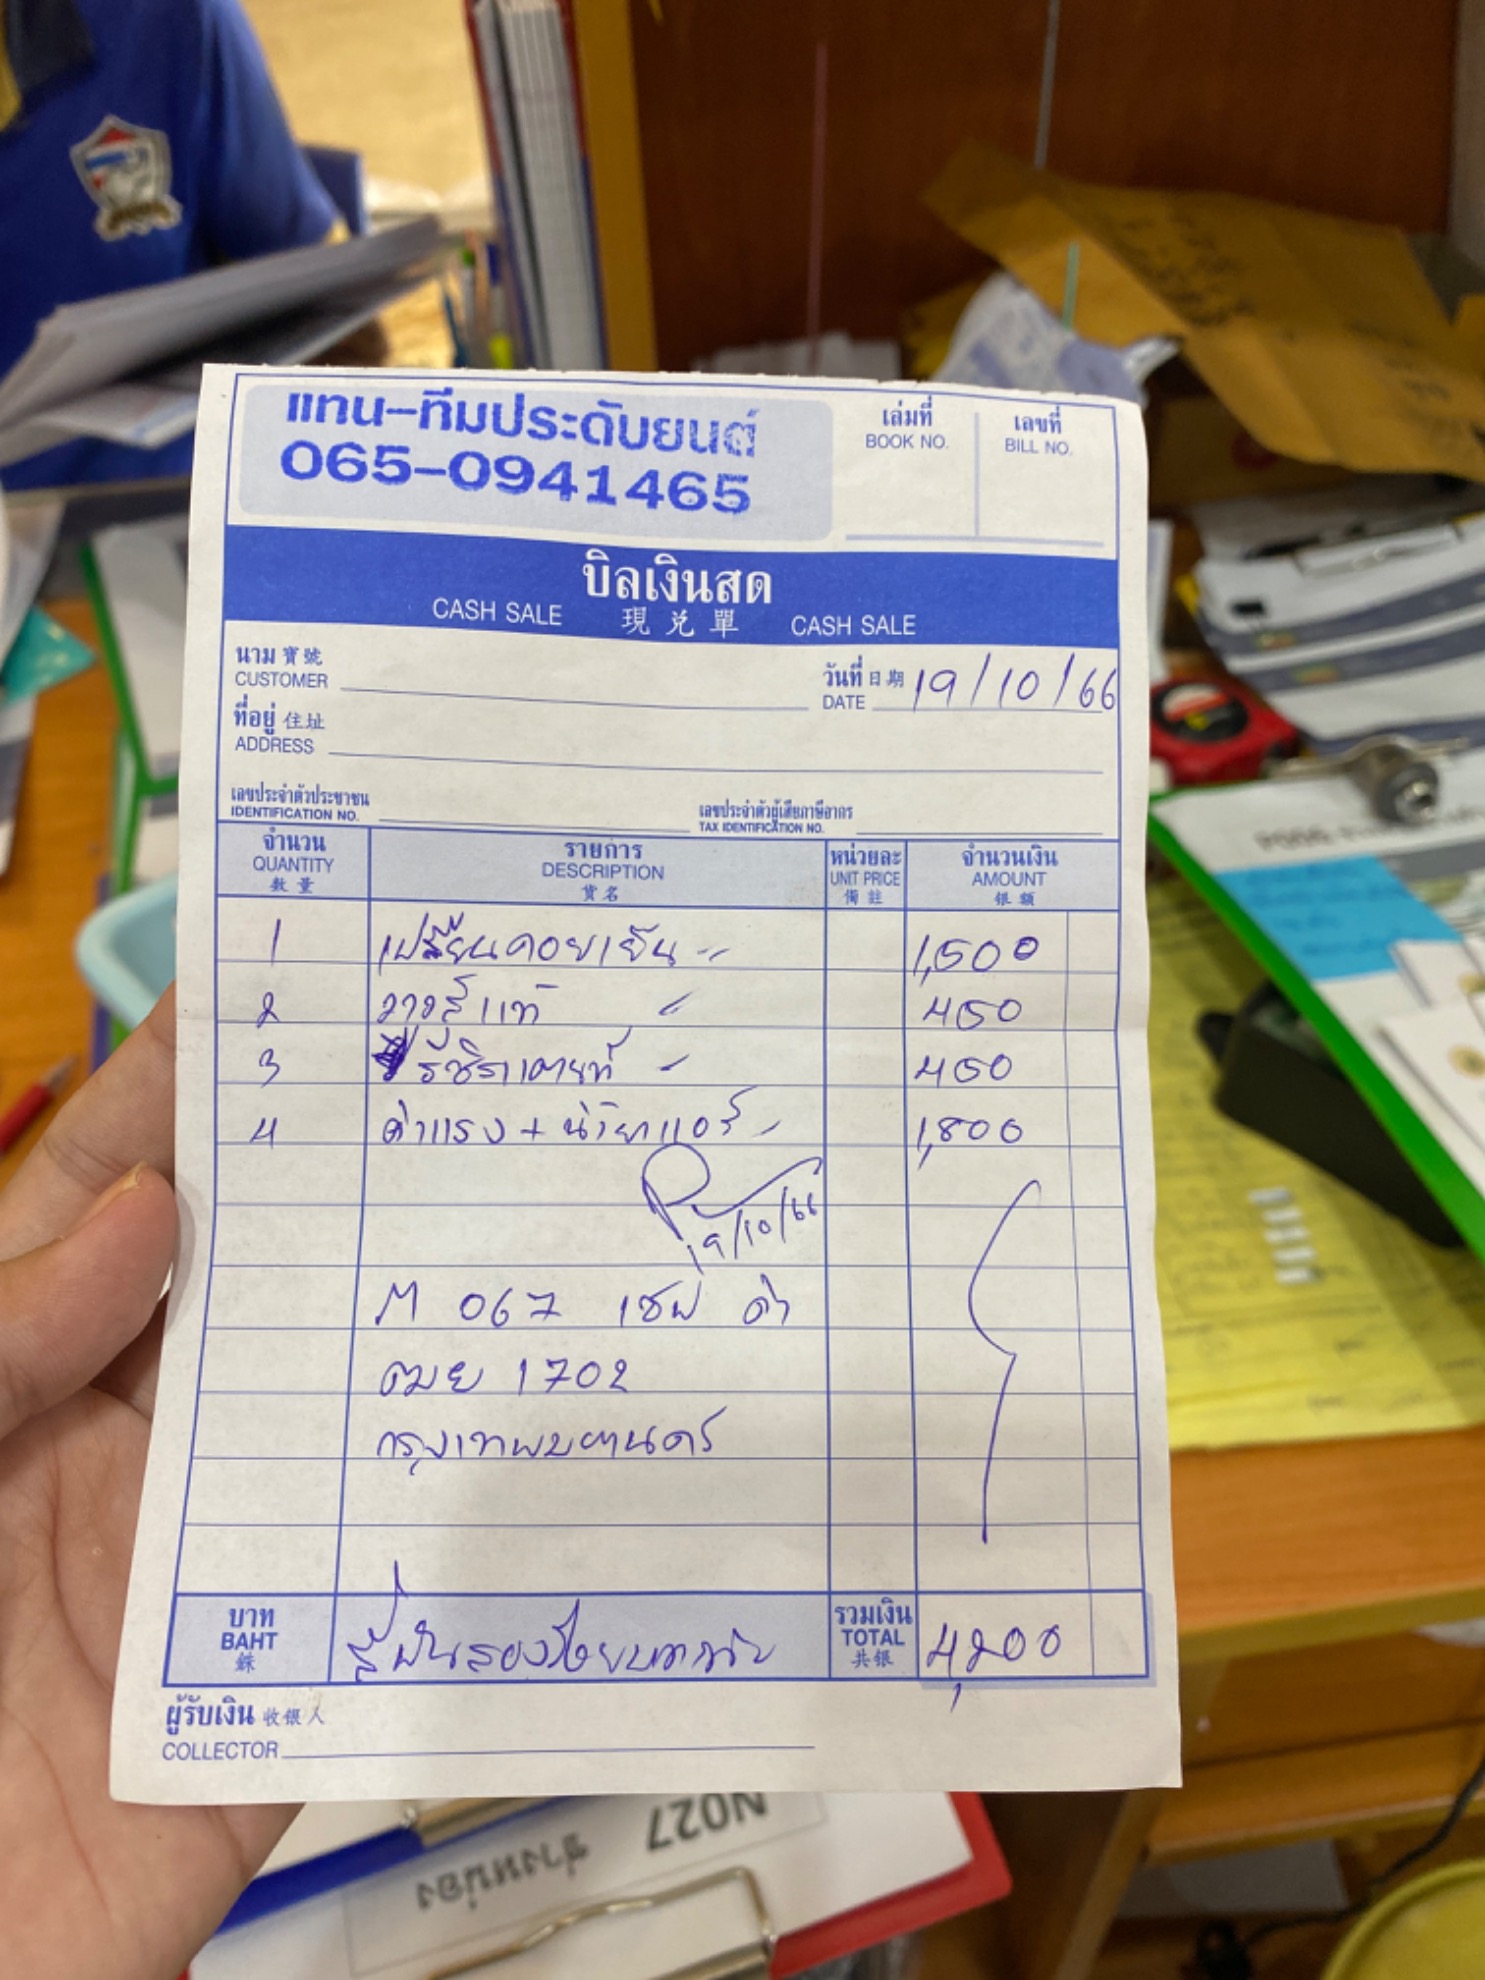 แทน-ทีมประดับยนต์
065-0941465
เล่มที่ เลขที่
BOOK NO. BILL NO.
บิลเงินสด
CASH SALE 現兑單 CASH SALE
นาม 寶號 วันที่ 日期 19/10/66
CUSTOMER DATE
ที่อยู่ 住址
ADDRESS
เลขประจำตัวประชาชน เลขประจำตัวผู้เสียภาษีอากร
IDENTIFICATION NO. TAX IDENTIFICATION NO.
จำนวน รายการ หน่วยละ จำนวนเงิน
QUANTITY DESCRIPTION UNIT PRICE AMOUNT
數量 貨名 備註 銀額
1 เปลี่ยนคอยเย็น 1,500
2 วาวล์แท้ 450
3 450
4 ค่าแรง + น้ำยาแอร์ 1,800
19/10/66
M 067 เชฟ ดำ
ฒย 1702
กรุงเทพมหานคร
บาท สี่พันสองร้อยบาทถ้วน รวมเงิน 4,200
BAHT TOTAL
銖 共銀
ผู้รับเงิน 收銀人
COLLECTOR
N027
ช่างหน่อง